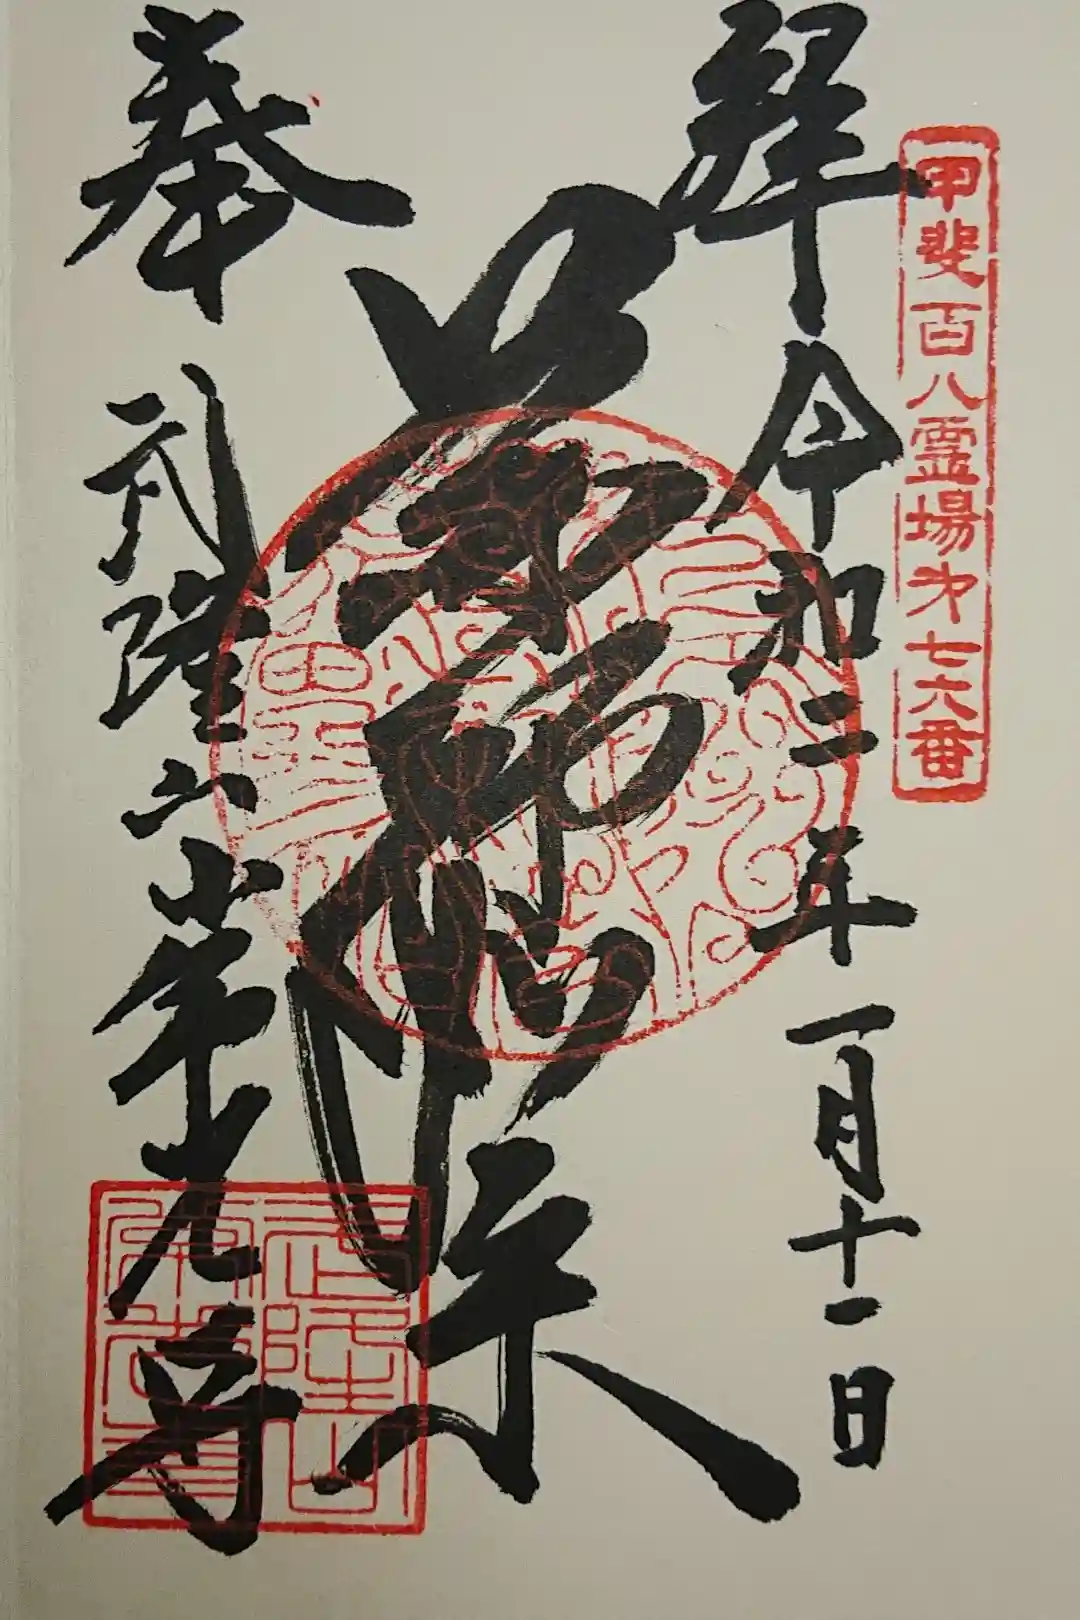 甲斐百八霊場第七六番
拝 令和二年一月十一日
薬師如来
奉 武隆山常光寺